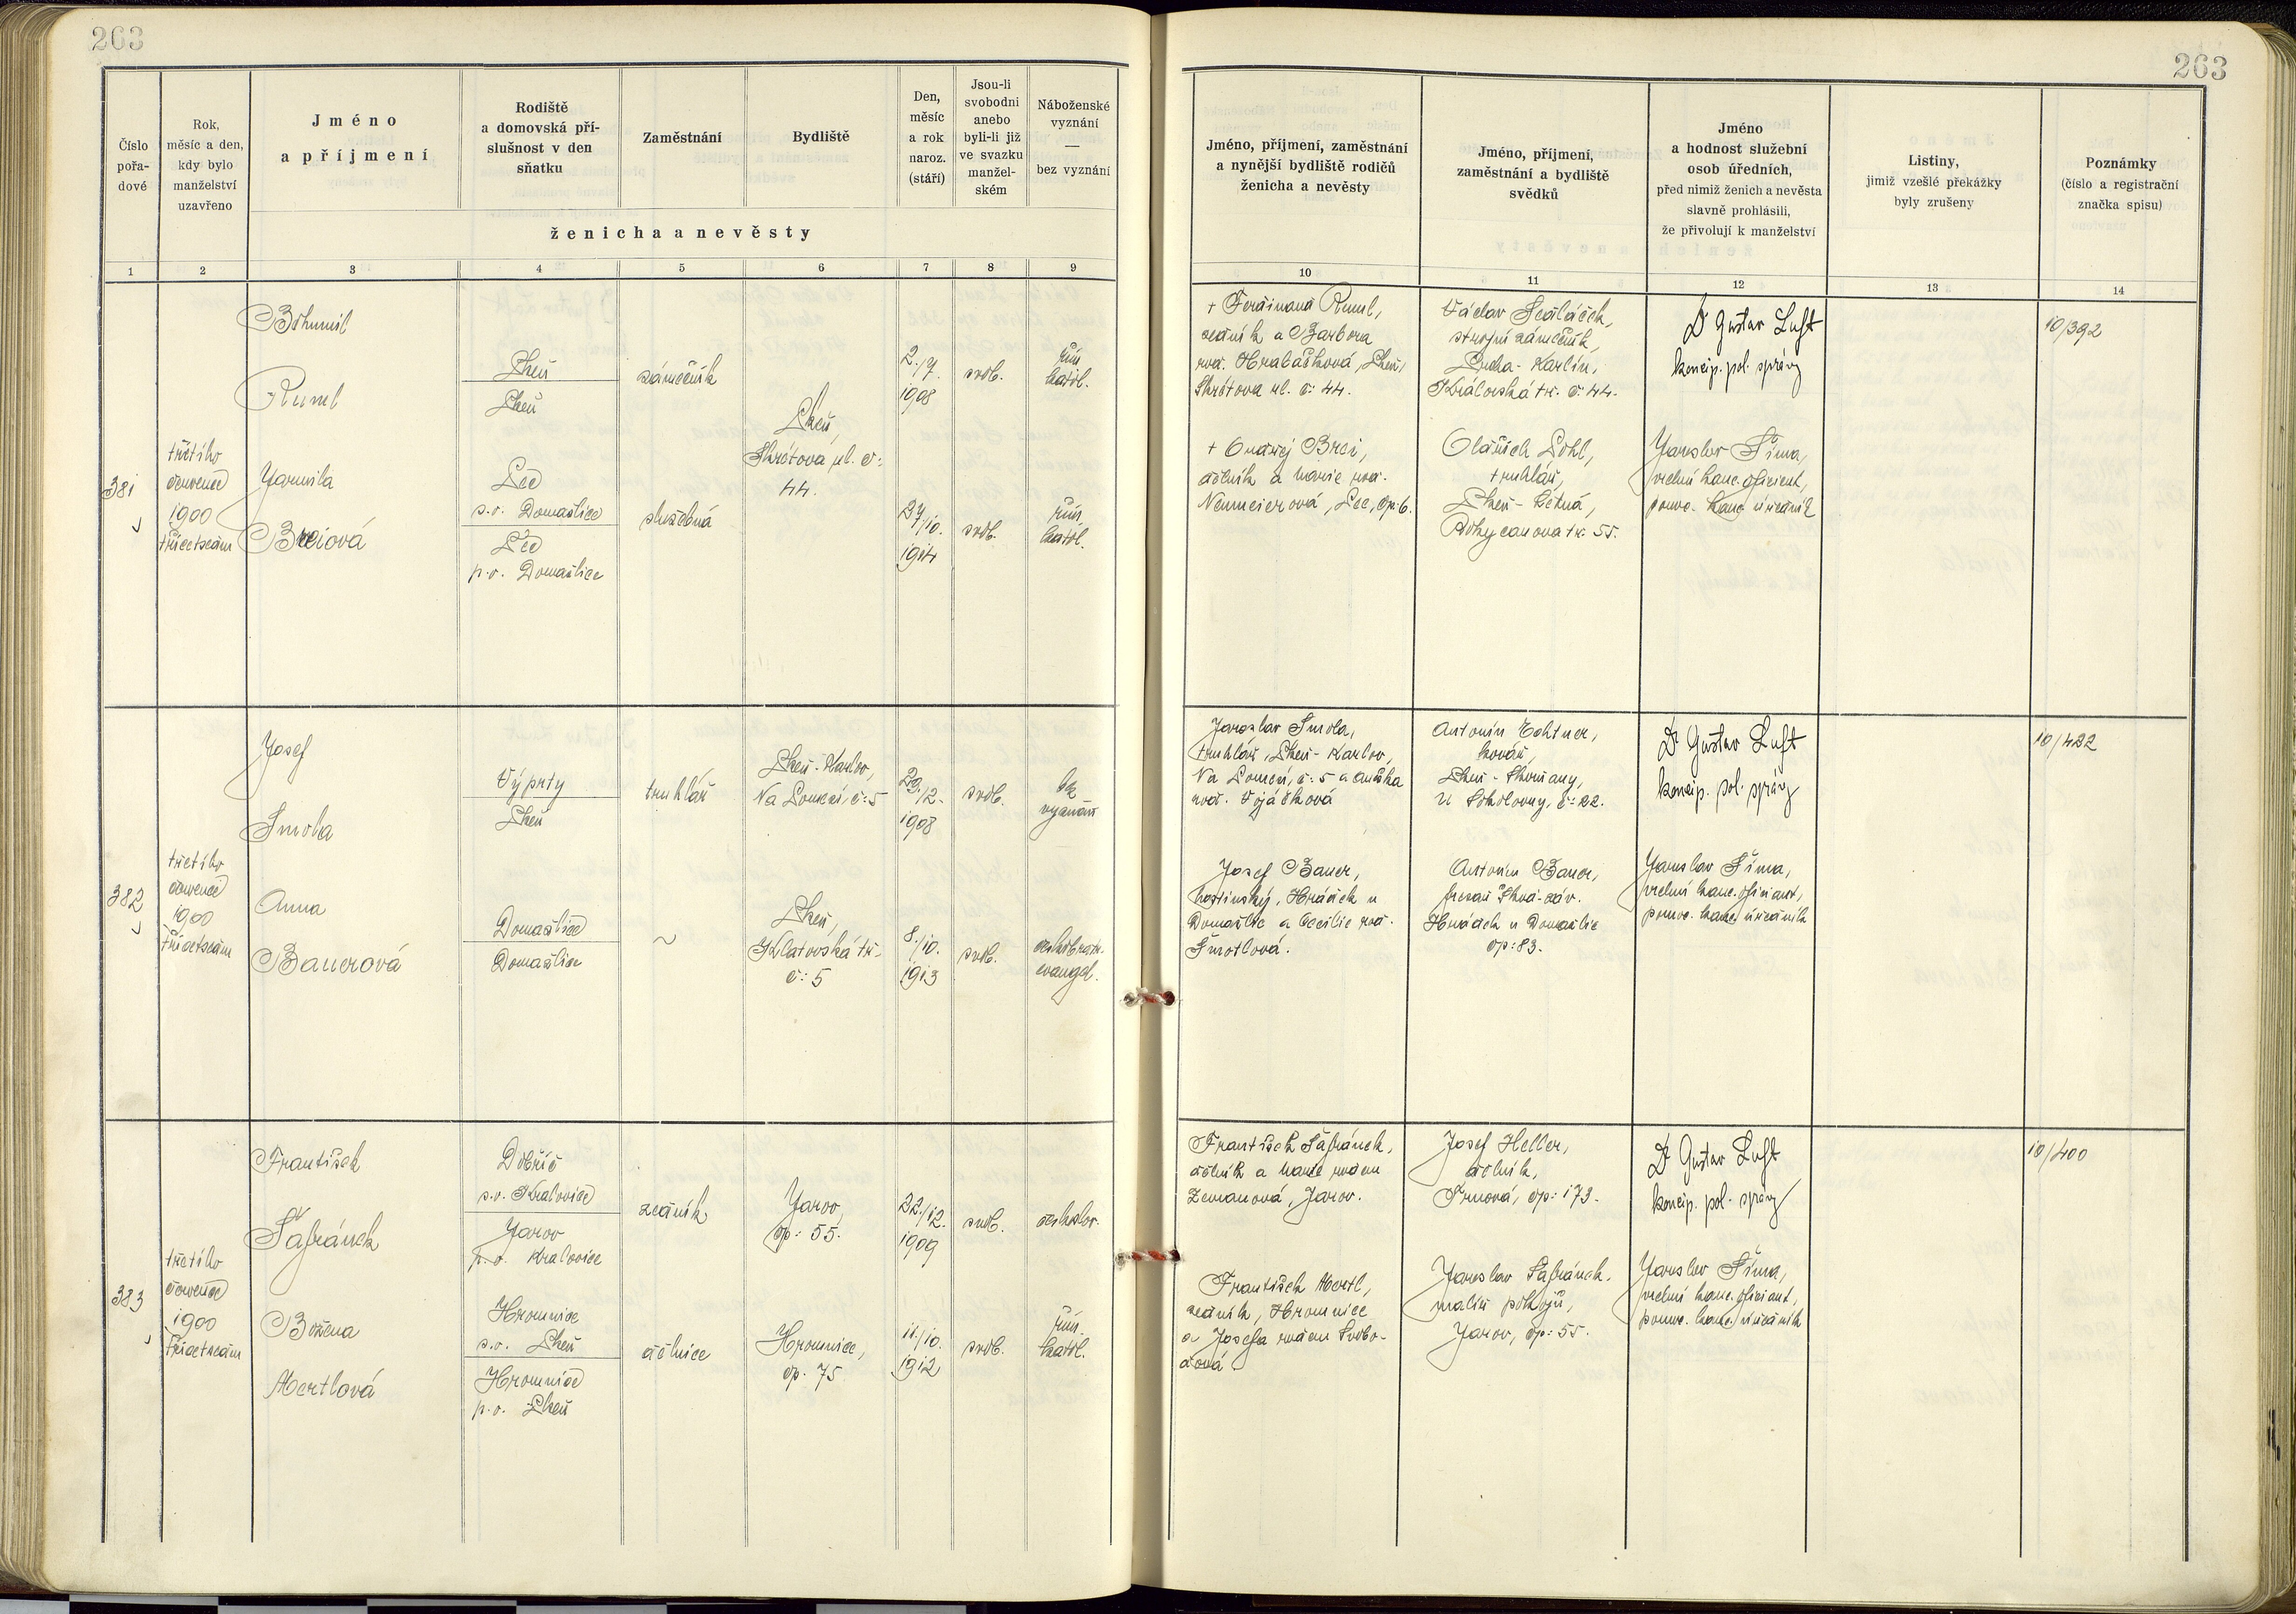 263
263
Číslo pořa- dové
Rok, měsíc a den, kdy bylo manželství uzavřeno
Jméno a příjmení
Rodiště a domovská pří- slušnost v den sňatku
Zaměstnání
Bydliště
Den, měsíc a rok naroz. (stáří)
Jsou-li svobodni anebo byli-li již ve svazku manžel- ském
Náboženské vyznání — bez vyznání
ženicha a nevěsty
Jméno, příjmení, zaměstnání a nynější bydliště rodičů ženicha a nevěsty
Jméno, příjmení, zaměstnání a bydliště svědků
Jméno a hodnost služební osob úředních, před nimiž ženich a nevěsta slavně prohlásili, že přivolují k manželství
Listiny, jimiž vzešlé překážky byly zrušeny
Poznámky (číslo a registrační značka spisu)
1 2 3 4 5 6 7 8 9 10 11 12 13 14
381
třetího
července
1900
třicetsedm
Bohumil
Plzeň
Plzeň
zámečník
Plzeň,
Škrétova ul. č:
44.
2./7.
1908
svob.
řím.
katol.
Jarmila
Breiová
s.o. Domažlice
p.o. Domažlice
služebná
27/10.
1914
svob.
řím.
katol.
+ Ferdinand
zedník a Barbora
roz. Plzeň,
Škrétova ul. č: 44.
+ Ondřej Brei,
dělník a Marie roz.
Neumeierová, čp. 6.
Václav Sedláček,
strojní zámečník,
Praha-Karlín,
Královská tř. č: 44.
Oldřich
truhlář,
Plzeň-Letná,
Rokycanova tř: 55.
Dr Gustav Luft
koncip. pol. správy
Jaroslav Šíma,
vrchní kanc. oficiant,
pouk. kanc. úředník
10/392
382
třetího
července
1900
třicetsedm
Josef
Smola
Výprty
Plzeň
truhlář
Plzeň-Karlov,
č: 5
29./12.
1908
svob.
bez
vyznání
Anna
Bauerová
Domažlice
Domažlice
~
Plzeň,
Klatovská tř.
č: 5
8./10.
1913
svob.
českobratr.
evangel.
Jaroslav Smola,
truhlář, Plzeň-Karlov,
č: 5 a Anežka
roz.
Josef Bauer,
hostinský, Hrádek u
Domažlic a Cecilie roz.
Šmotlová.
Antonín
kovář,
Plzeň-Skvrňany,
u Sokolovny, č: 22.
Antonín Bauer,
Škod. záv.
Hrádek u Domažlic
čp: 83.
Dr Gustav Luft
koncip. pol. správy
Jaroslav Šíma,
vrchní kanc. oficiant,
pouk. kanc. úředník
10/422
383
třetího
července
1900
třicetsedm
František
Šafránek
Dobříč
s.o. Kralovice
Jarov
p.o. Kralovice
zedník
Jarov,
čp: 55.
22./12.
1909
svob.
českoslov.
Božena
Mertlová
Hromnice
s.o. Plzeň
Hromnice
p.o. Plzeň
dělnice
Hromnice,
čp. 75
11./10.
1912
svob.
řím.
katol.
František Šafránek,
dělník a Marie rozen
Zemanová, Jarov.
František Mertl,
zedník, Hromnice
a Josefa rozen Svobo-
dová
Josef Heller,
dělník,
čp: 173.
Jaroslav Šafránek,
malíř pokojů,
Jarov, čp: 55.
Dr Gustav Luft
koncip. pol. správy
Jaroslav Šíma,
vrchní kanc. oficiant,
pouk. kanc. úředník
10/400